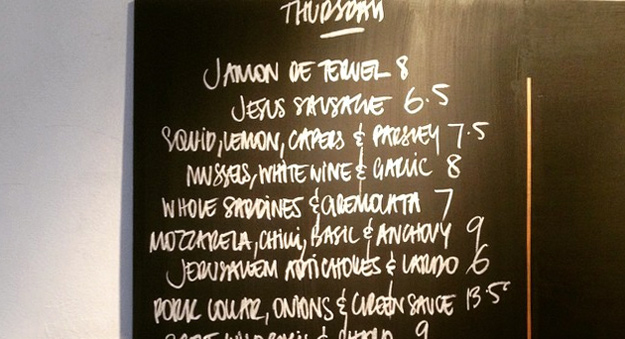 THURSDAY
JAMON DE TERUEL 8
JESUS SAUSAGE 6.5
SQUID, LEMON, CAPERS & PARSLEY 7.5
MUSSELS, WHITE WINE & GARLIC 8
WHOLE SARDINES & GREMOLATA 7
MOZZARELA, CHILI, BASIL & ANCHOVY 9
JERUSALEM ARTICHOKES & LARDO 6
PORK COLLAR, ONIONS & GREEN SAUCE 13.5
WILD & 9